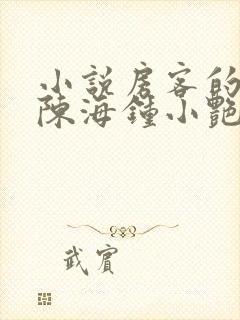 小說房客的
陳海鍾小艷
武賓